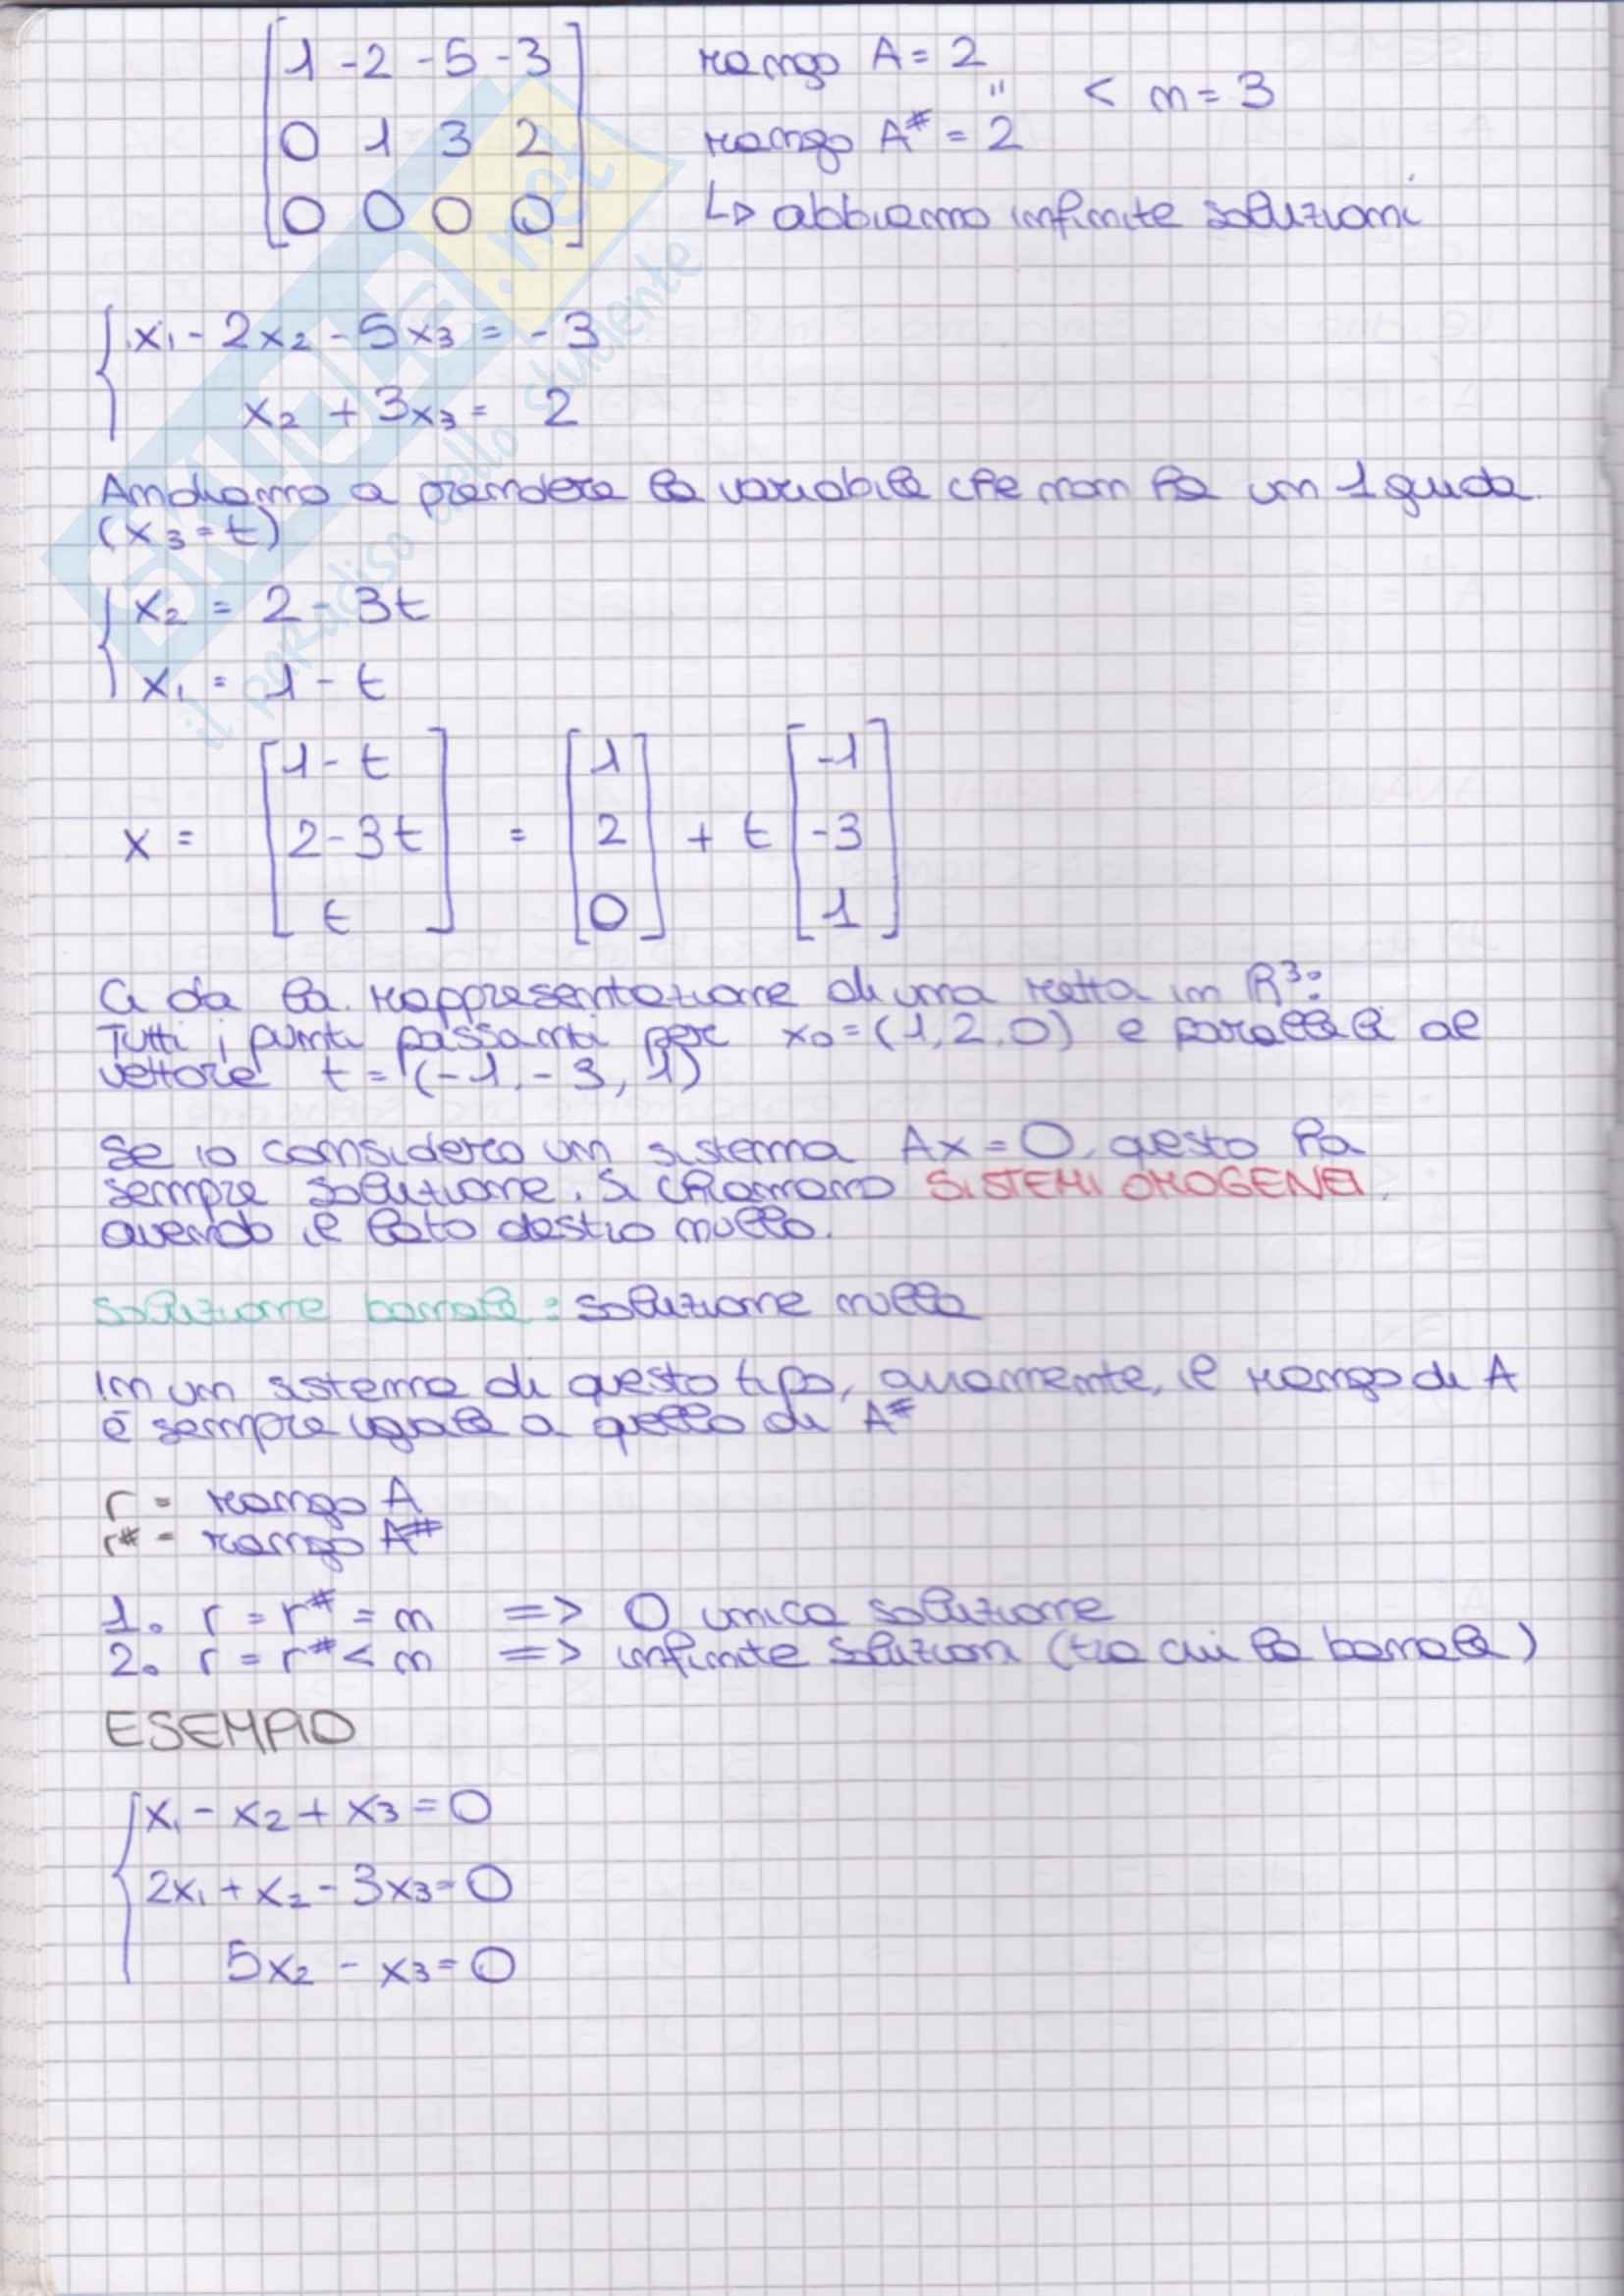 [1 -2 -5 -3] rango A = 2
" < n = 3
[0 1 3 2] rango A# = 2
[0 0 0 0] ↳ abbiamo infinite soluzioni
{ x₁ - 2x₂ - 5x₃ = -3
x₂ + 3x₃ = 2
Andiamo a prendere la variabile che non ha un 1 guida.
(x₃ = t)
{ x₂ = 2 - 3t
x₁ = 1 - t
x = [1 - t; 2 - 3t; t] = [1; 2; 0] + t [-1; -3; 1]
Ci da la rappresentazione di una retta in R³:
Tutti i punti passanti per x₀ = (1, 2, 0) e paralleli al
vettore t = (-1, -3, 1)
Se io considero un sistema Ax = 0, qesto ha
sempre soluzione. Si chiamano SISTEMI OMOGENEI,
avendo il lato destro nullo.
Soluzione banale: soluzione nulla
In un sistema di questo tipo, ovviamente, il rango di A
è sempre uguale a quello di A#
r = rango A
r# = rango A#
1. r = r# = n => 0 unica soluzione
2. r = r# < n => infinite soluzioni (tra cui la banale)
ESEMPIO
{ x₁ - x₂ + x₃ = 0
2x₁ + x₂ - 3x₃ = 0
5x₂ - x₃ = 0
SKUOLA.net
il paradiso dello studente